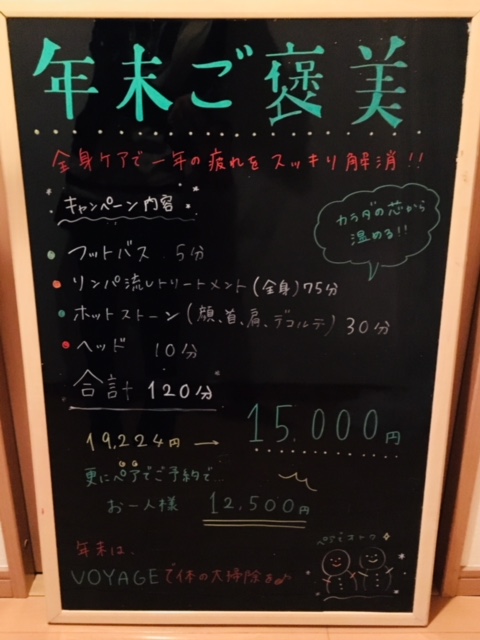 年末ご褒美
全身ケアで一年の疲れをスッキリ解消!!
キャンペーン内容
カラダの芯から
温める!!
フットバス 5分
リンパ流しトリートメント(全身)75分
ホットストーン(顔、首、肩、デコルテ)30分
ヘッド 10分
合計 120分
19,224円 → 15,000円
更にペアでご予約で
お一人様 12,500円
年末は、
VOYAGEで体の大掃除を♪